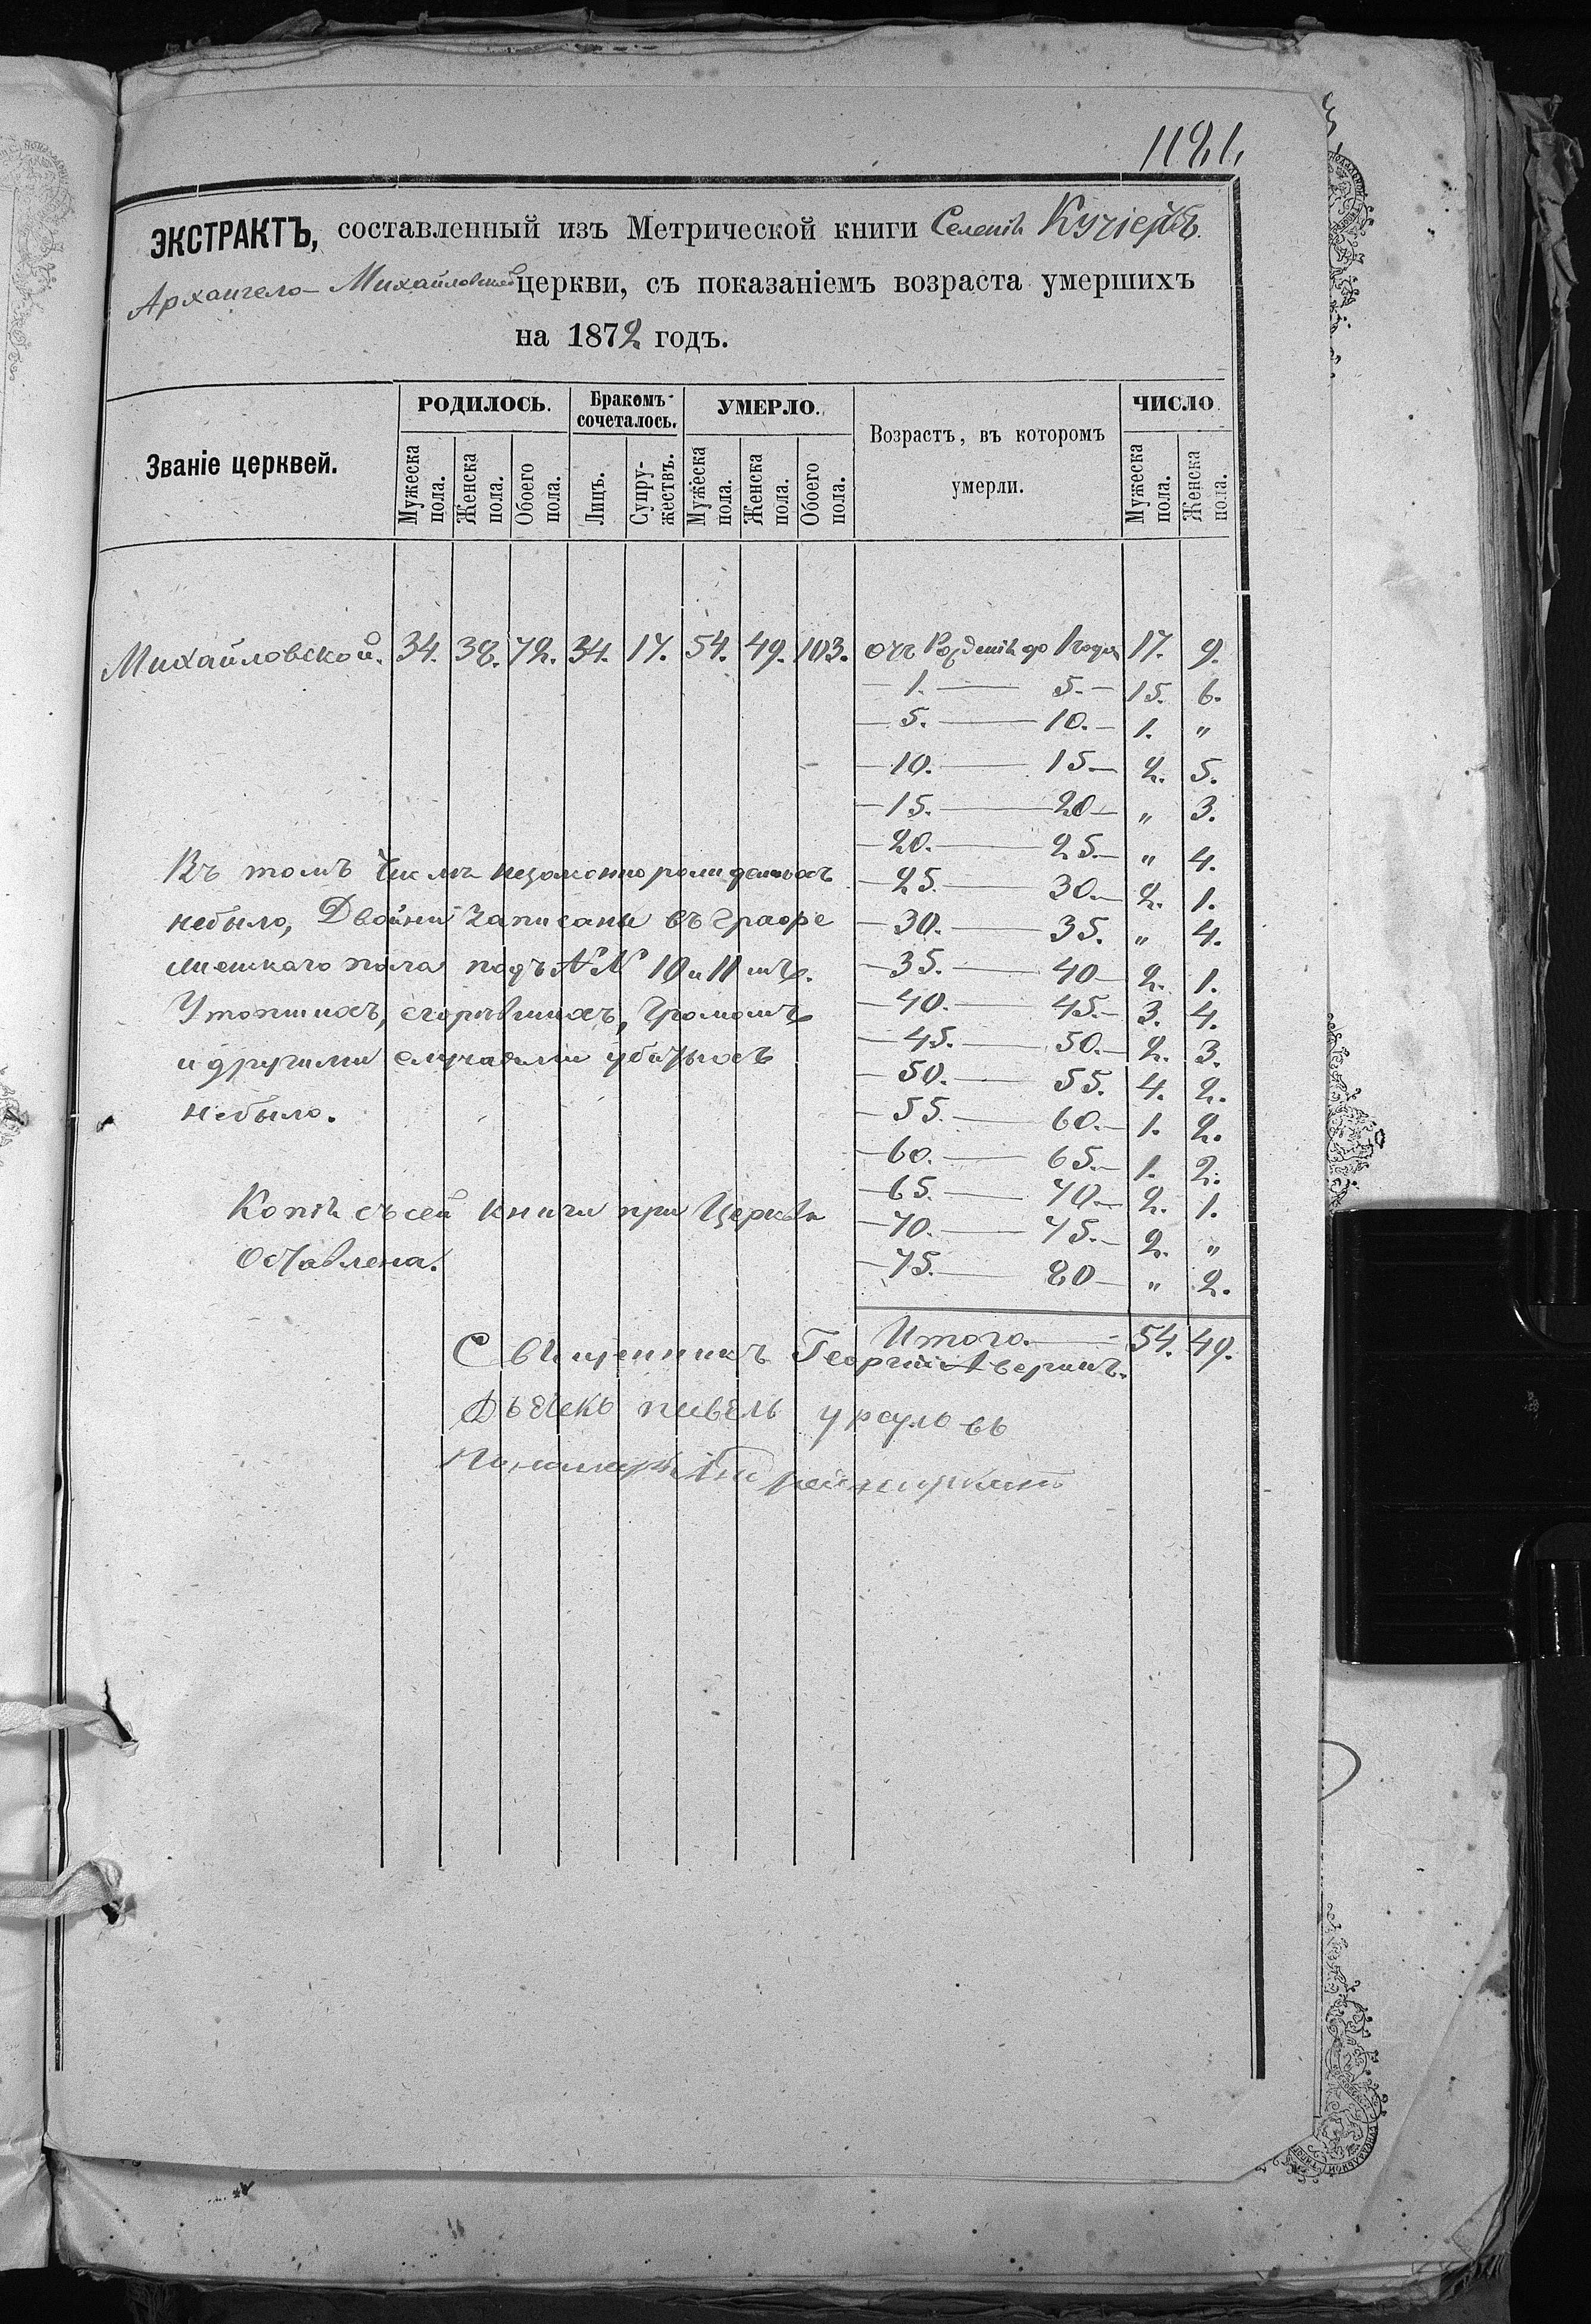 1121.
ЭКСТРАКТЪ, составленный изъ Метрической книги Селенія Кугіейбъ
Архангело-Михайловской церкви, съ показаніемъ возраста умершихъ
на 1872 годъ.
Званіе церквей. РОДИЛОСЬ. Бракомъ сочеталось. УМЕРЛО. Возрастъ, въ которомъ умерли. ЧИСЛО.
Мужеска пола. Женска пола. Обоего пола. Лицъ. Супружествъ. Мужеска пола. Женска пола. Обоего пола. Мужеска пола. Женска пола.
Михайловской. 34. 38. 72. 34. 17. 54. 49. 103. отъ Рожденія до 1 года 17. 9.
— 1. — 5. — 15. 6.
— 5. — 10. — 1. "
— 10. — 15 — 2. 5.
— 15. — 20 — " 3.
— 20. — 25. — " 4.
— 25. — 30. — 2. 1.
— 30. — 35. " 4.
— 35. — 40 — 2. 1.
— 40. — 45. — 3. 4.
— 45. — 50. — 2. 3.
— 50. — 55. 4. 2.
— 55. — 60. — 1. 2.
— 60. — 65. — 1. 2.
— 65. — 70 — 2. 1.
— 70. — 75. — 2. "
— 75. — 80 — " 2.
Итого. — 54. 49.
Въ томъ числѣ незаконнорожденныхъ
небыло, Двойни записаны въ графѣ
мужскаго пола подъ №№ 10 и 11 мъ.
Утопшихъ, сгорѣвшихъ, Громомъ
и другими случаями убитыхъ
небыло.
Копія съ сей книги при Церкви
Оставлена.
Священникъ Георгій Аверинъ.
Дьячекъ павелъ урсулъ въ
Пономарь